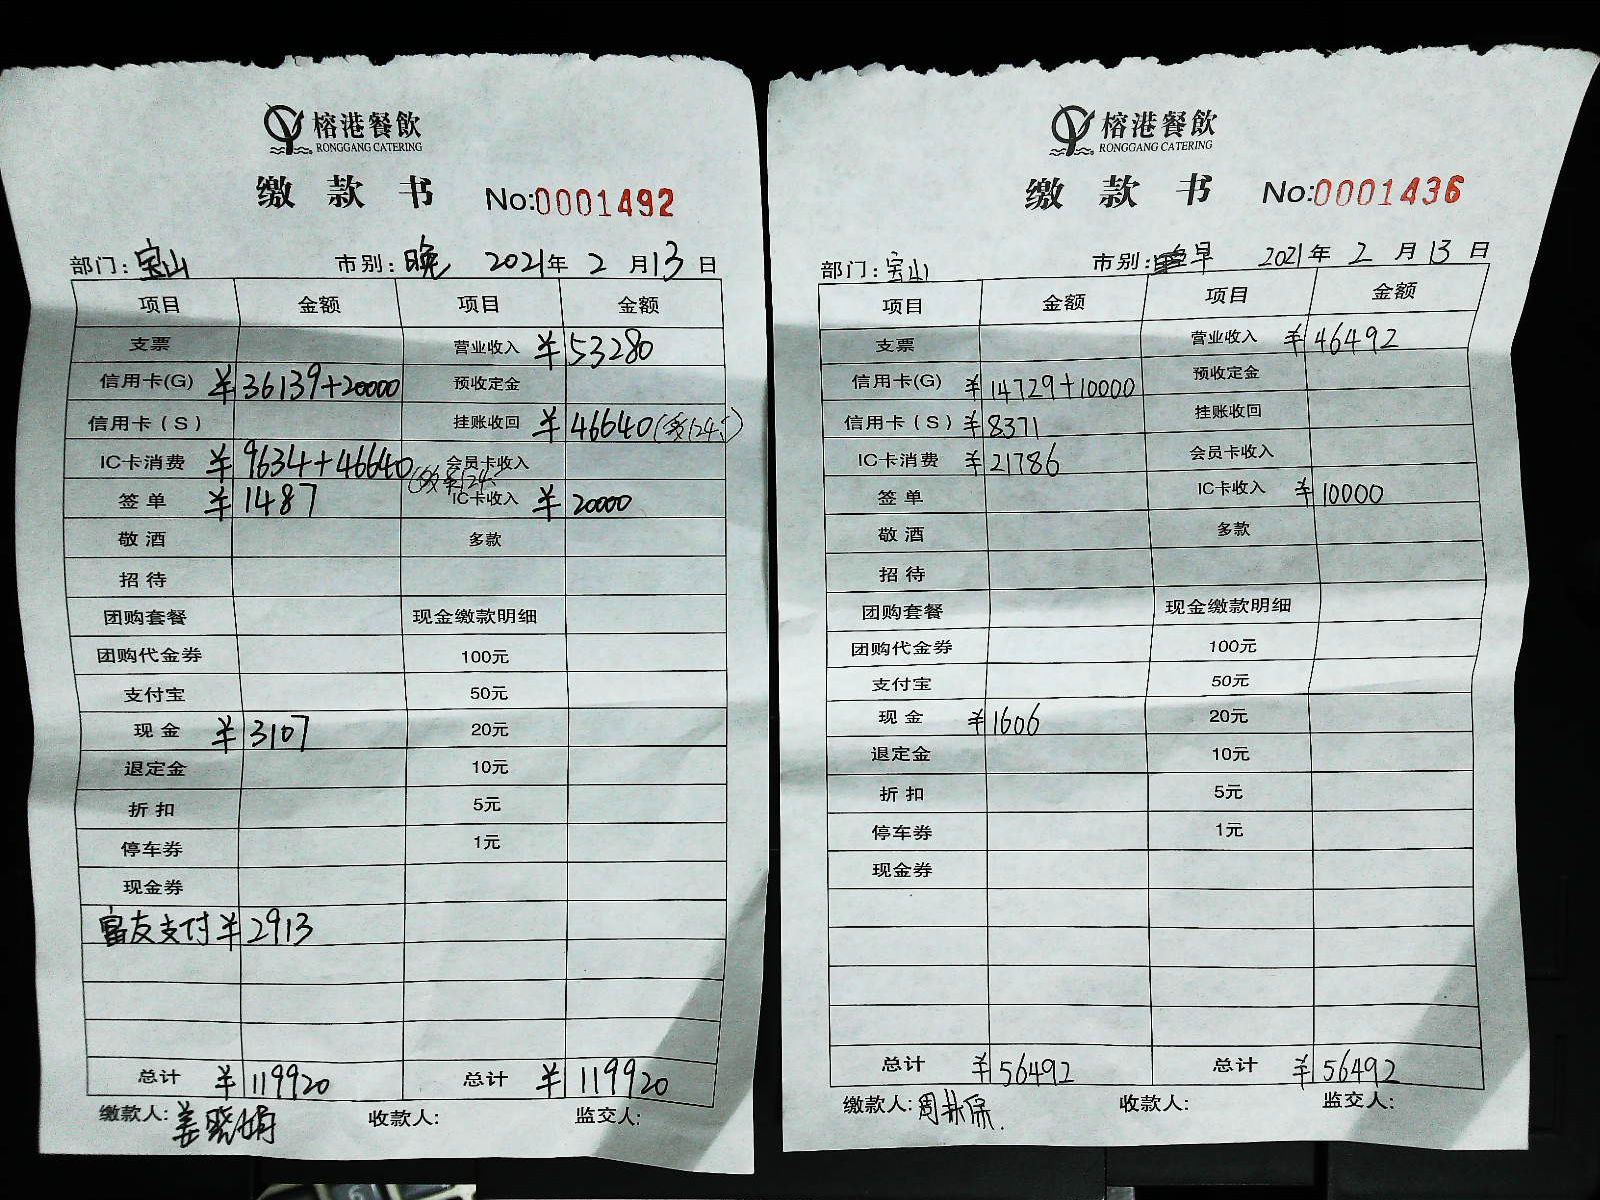 榕港餐飲
RONGGANG CATERING
缴款书 No:0001492
部门:宝山 市别:晚 2021年2月13日
项目 金额 项目 金额
支票 营业收入 ¥53280
信用卡(G) ¥36139+20000 预收定金
信用卡(S) 挂账收回 ¥46640
IC卡消费 ¥9634+46640 会员卡收入
签单 ¥1487 IC卡收入 ¥20000
敬酒 多款
招待
团购套餐 现金缴款明细
团购代金券 100元
支付宝 50元
现金 ¥3107 20元
退定金 10元
折扣 5元
停车券 1元
现金券
富友支付 ¥2913
总计 ¥119920 总计 ¥119920
缴款人:姜晓娟 收款人: 监交人:
榕港餐飲
RONGGANG CATERING
缴款书 No:0001436
部门:宝山 市别:早 2021年2月13日
项目 金额 项目 金额
支票 营业收入 ¥46492
信用卡(G) ¥14729+10000 预收定金
信用卡(S) ¥8371 挂账收回
IC卡消费 ¥21786 会员卡收入
签单 IC卡收入 ¥10000
敬酒 多款
招待
团购套餐 现金缴款明细
团购代金券 100元
支付宝 50元
现金 ¥1606 20元
退定金 10元
折扣 5元
停车券 1元
现金券
总计 ¥56492 总计 ¥56492
缴款人:周 收款人: 监交人: